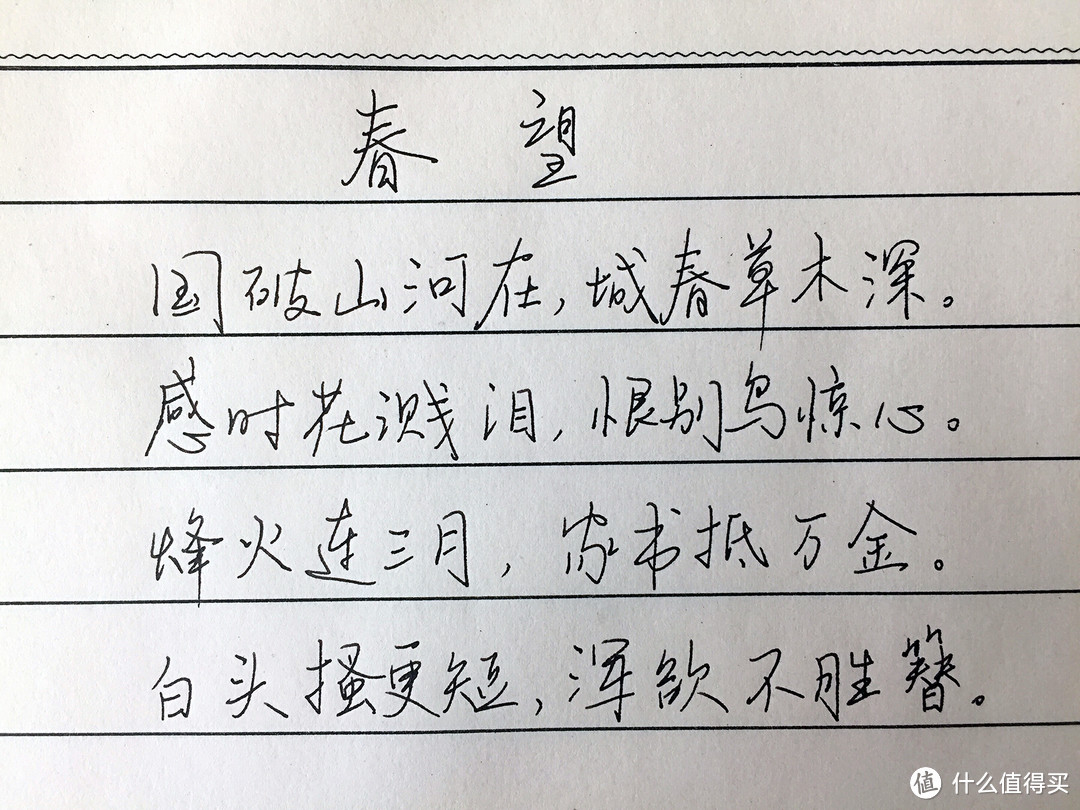 春望
国破山河在,城春草木深。
感时花溅泪,恨别鸟惊心。
烽火连三月,家书抵万金。
白头搔更短,浑欲不胜簪。
值 什么值得买